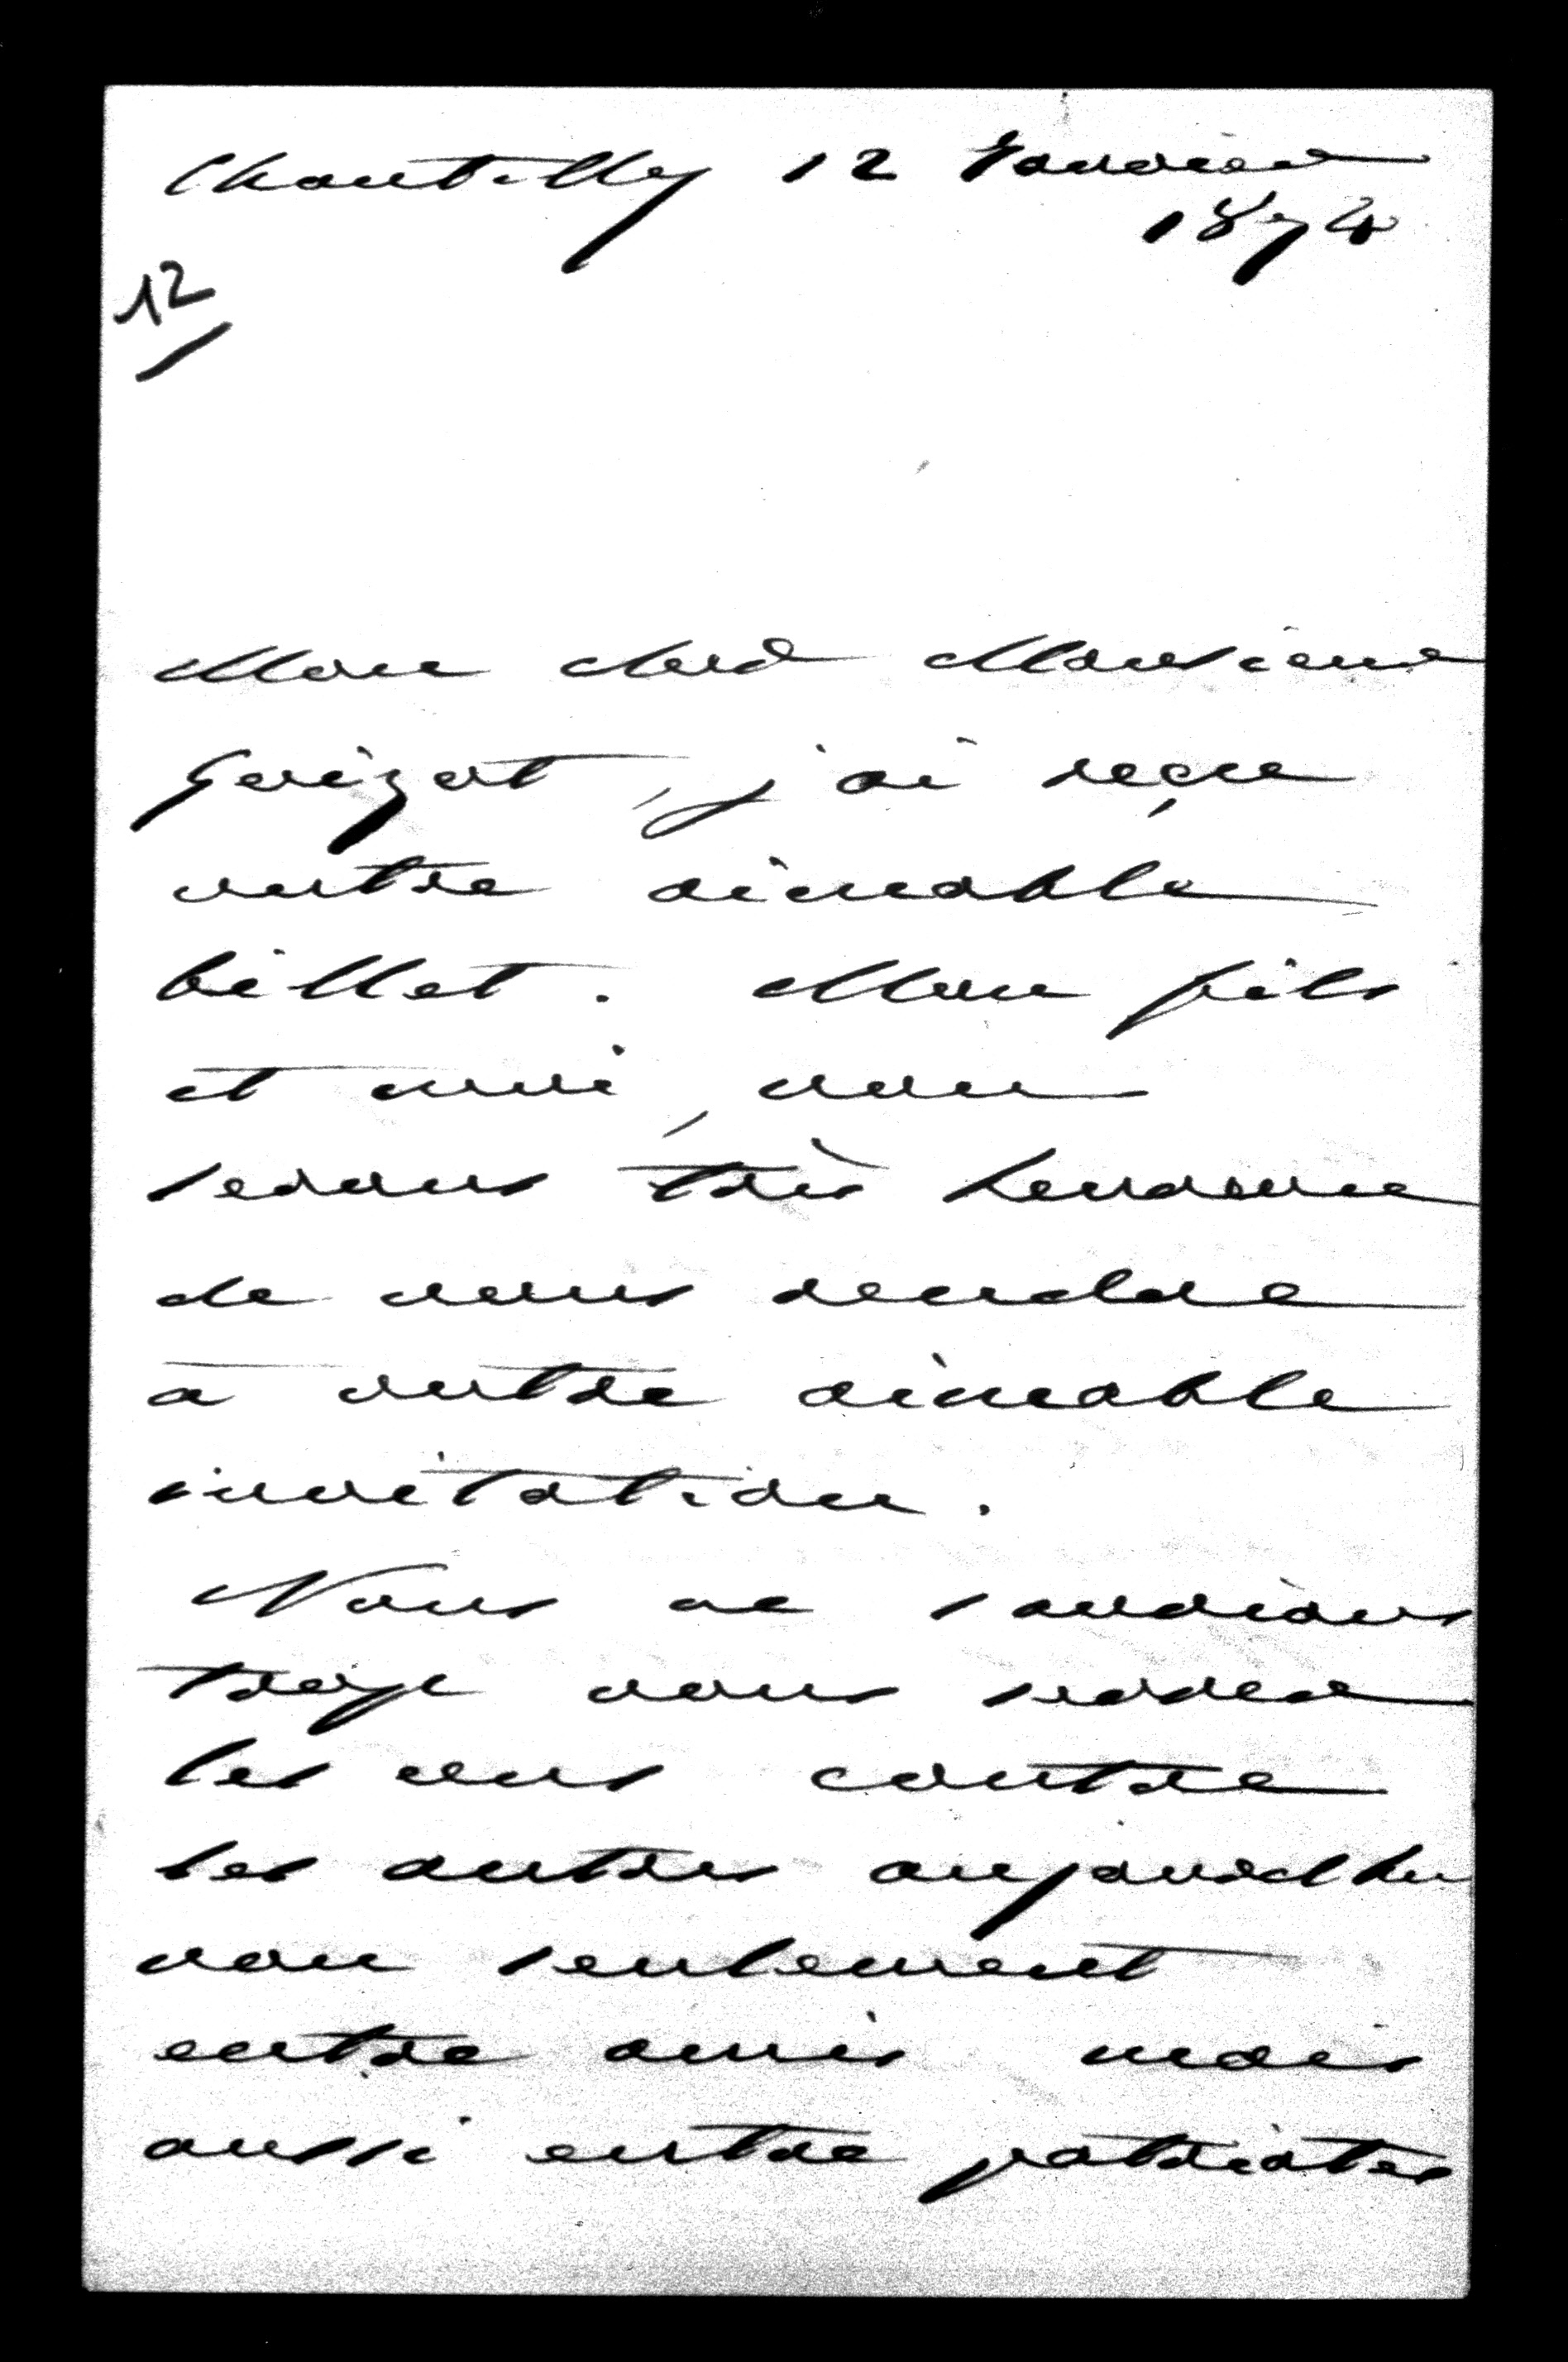 Chantilly 12 Janvier
1874
12
Mon cher Monsieur
Guizot, j'ai reçu
votre aimable
billet. Mon fils
et moi, nous
serons très heureux
de nous rendre
à votre aimable
invitation.
Nous ne saurions
trop nous serrer
les uns contre
les autres aujourdhui
non seulement
entre amis mais
aussi entre patriotes